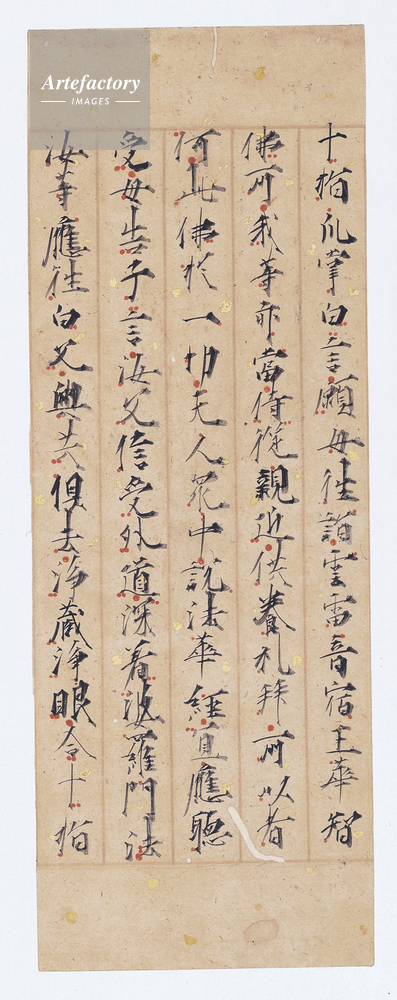 十指爪掌白言願母往詣雲雷音宿王華智
佛所我等亦當侍從親近供養礼拜所以者
何此佛於一切天人衆中説法華經宜應聽
受母告子言汝父信受外道深着婆羅門法
汝等應往白父與共俱去浄蔵浄眼合十指
Artefactory
IMAGES